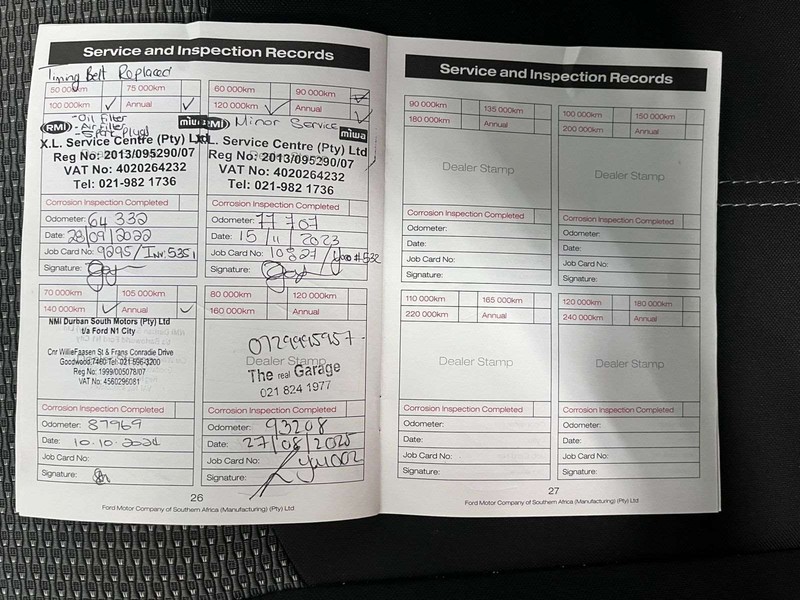 Service and Inspection Records
Timing Belt Replaced
50 000km 75 000km
100 000km ✓ Annual ✓
RMI - Oil Filter miwa
- Air Filter
- Spark Plugs
X.L. Service Centre (Pty) Ltd
Reg No: 2013/095290/07
VAT No: 4020264232
Tel: 021-982 1736
Corrosion Inspection Completed
Odometer: 64 332
Date: 28/09/2022
Job Card No: 9295/Inv: 5351
Signature:
60 000km 90 000km ✓
120 000km ✓ Annual ✓
RMI Minor Service miwa
X.L. Service Centre (Pty) Ltd
Reg No: 2013/095290/07
VAT No: 4020264232
Tel: 021-982 1736
Corrosion Inspection Completed
Odometer: 77 707
Date: 15/11/2023
Job Card No: 10827/
Signature:
70 000km 105 000km
140 000km ✓ Annual ✓
NMI Durban South Motors (Pty) Ltd
t/a Ford N1 City
Cnr WillieFaasen St & Frans Conradie Drive
Goodwood,7460 Tel: 021 596-3200
Reg No: 1999/005078/07
VAT No: 4560296081
Corrosion Inspection Completed
Odometer: 87969
Date: 10.10.2024
Job Card No:
Signature:
80 000km 120 000km
160 000km Annual
Dealer Stamp
The real Garage
021 824 1977
Corrosion Inspection Completed
Odometer: 93208
Date: 27/08/2025
Job Card No:
Signature:
26
Ford Motor Company of Southern Africa (Manufacturing) (Pty) Ltd
Service and Inspection Records
90 000km 135 000km
180 000km Annual
Dealer Stamp
Corrosion Inspection Completed
Odometer:
Date:
Job Card No:
Signature:
100 000km 150 000km
200 000km Annual
Dealer Stamp
Corrosion Inspection Completed
Odometer:
Date:
Job Card No:
Signature:
110 000km 165 000km
220 000km Annual
Dealer Stamp
Corrosion Inspection Completed
Odometer:
Date:
Job Card No:
Signature:
120 000km 180 000km
240 000km Annual
Dealer Stamp
Corrosion Inspection Completed
Odometer:
Date:
Job Card No:
Signature:
27
Ford Motor Company of Southern Africa (Manufacturing) (Pty) Ltd